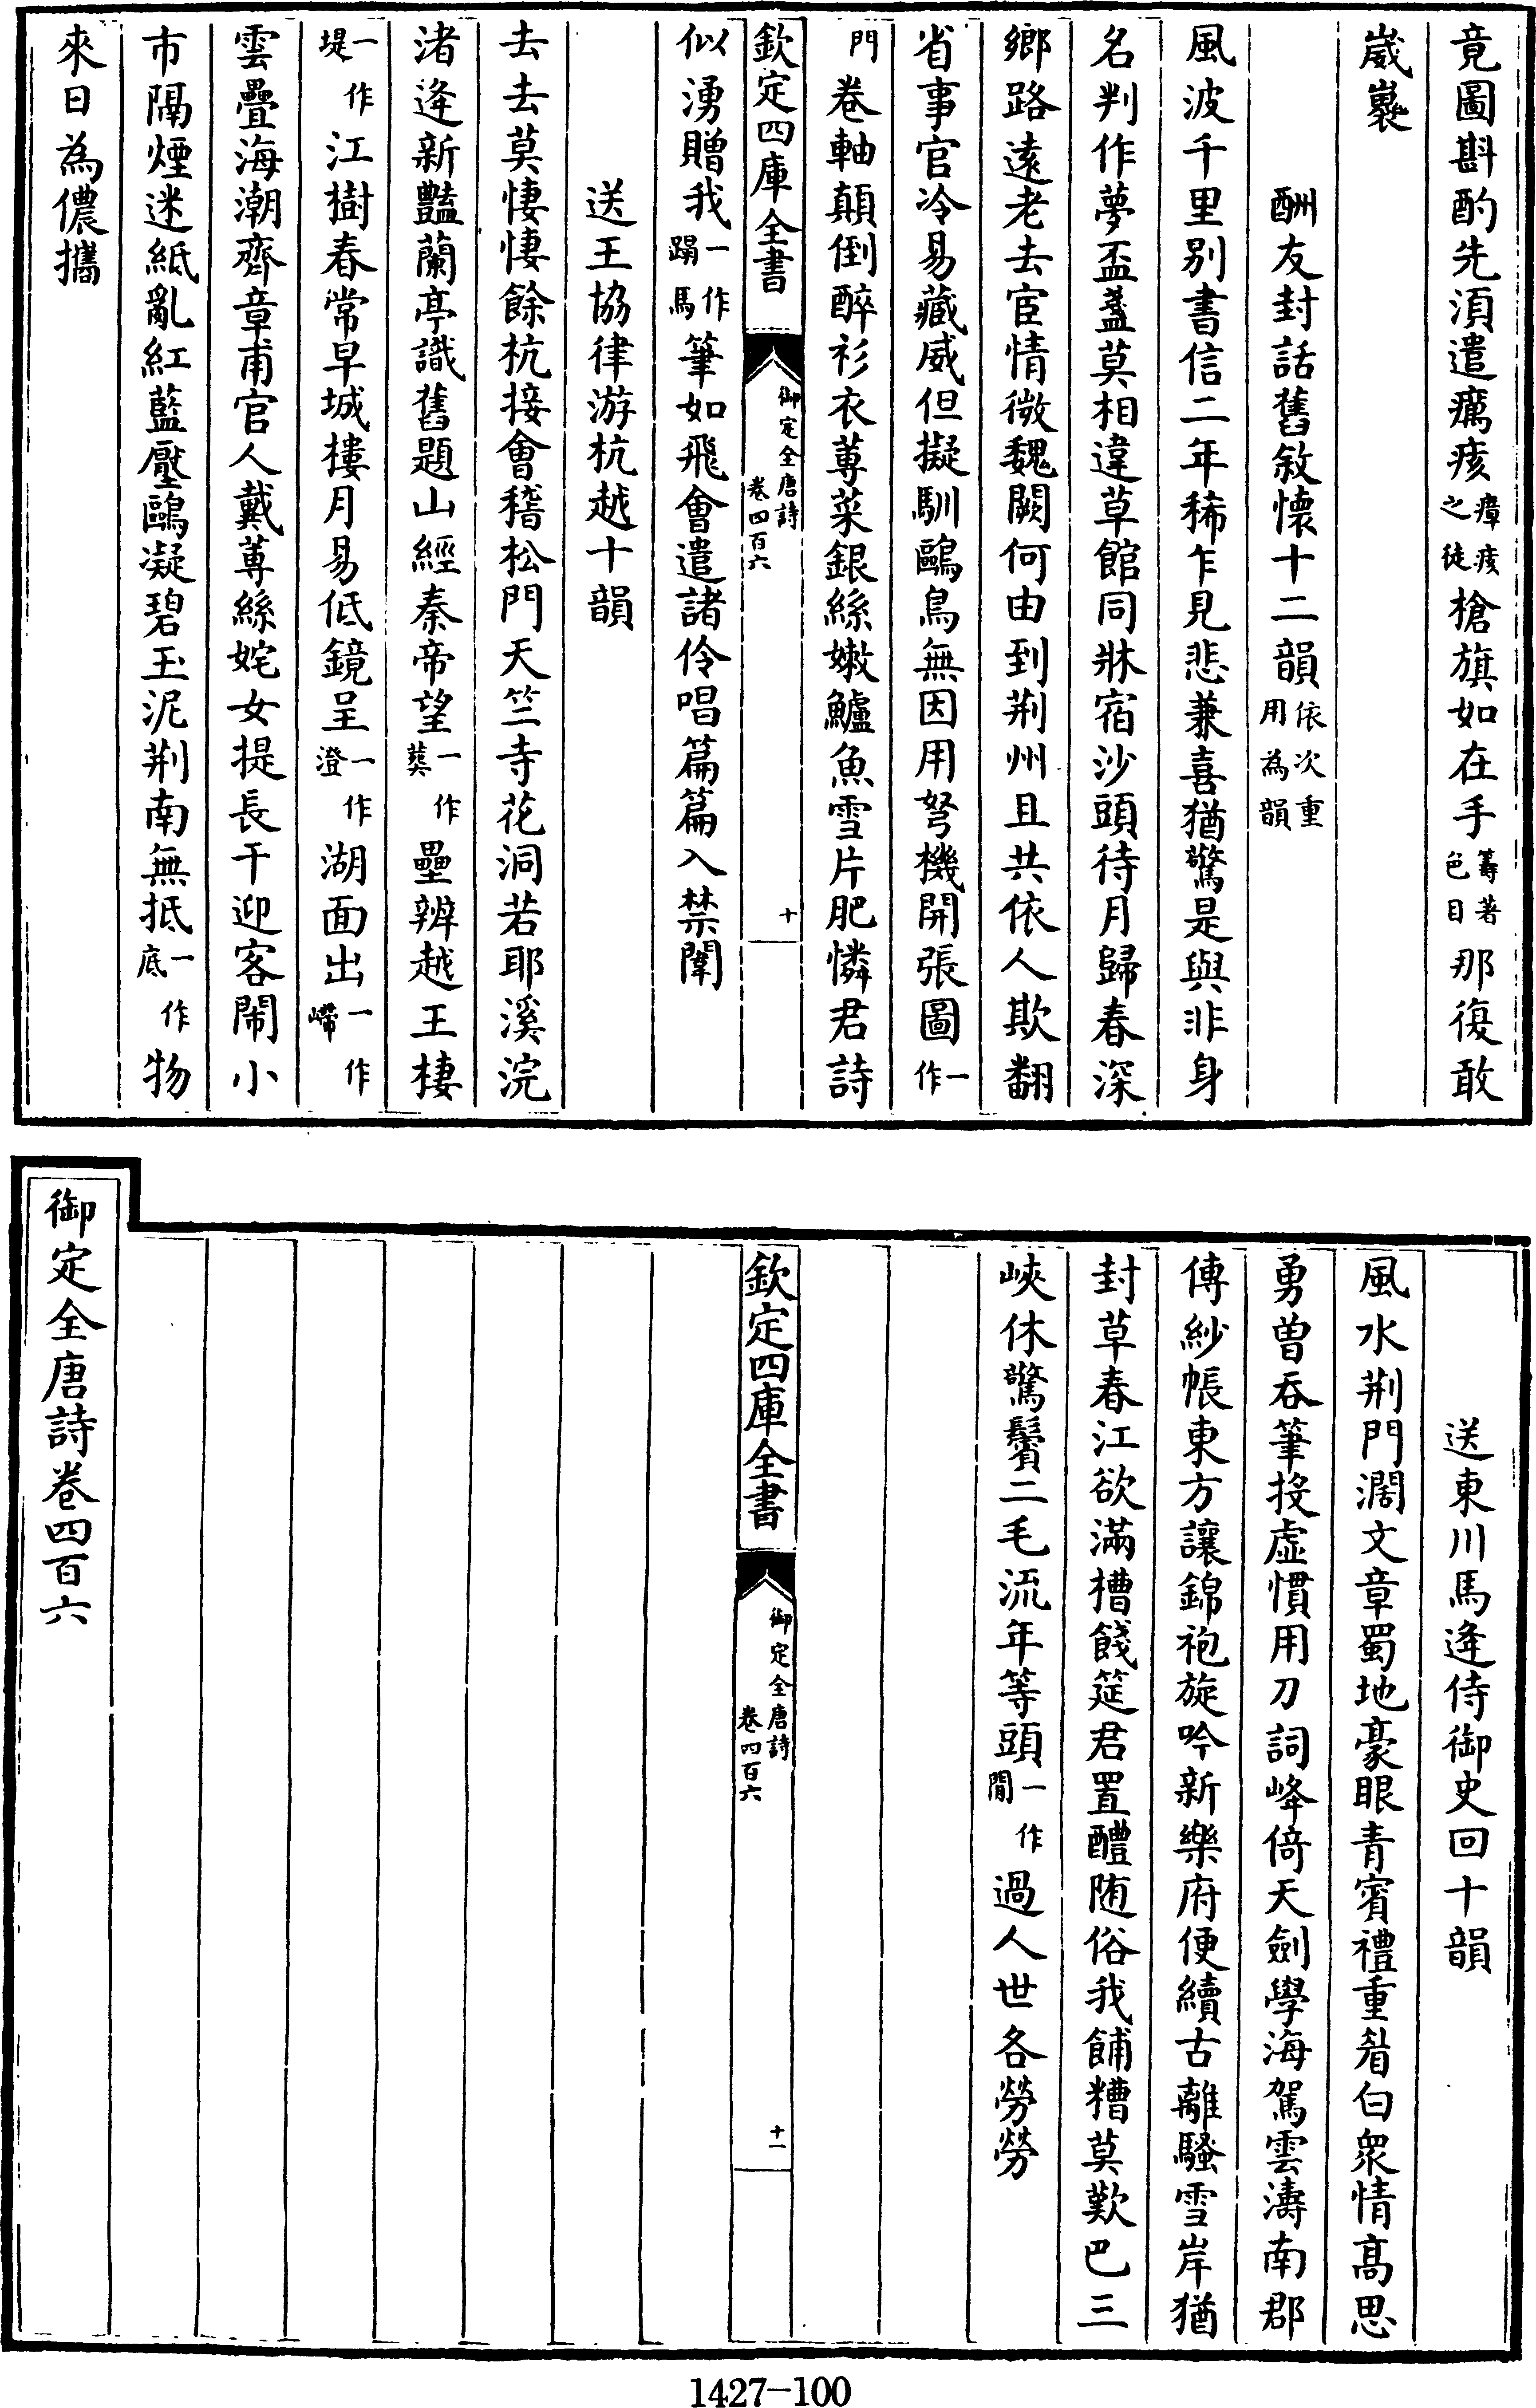 竟圖斟酌先須遣癘痎瘴痎之徒槍旗如在手籌著色目那復敢
崴嵬
酬友封話舊敘懷十二韻依次重用為韻
風波千里别書信二年稀乍見悲兼喜猶驚是與非身
名判作夢盃盞莫相違草館同牀宿沙頭待月歸春深
鄉路遠老去宦情微魏闕何由到荆州且共依人欺翻
省事官冷易藏威但擬馴鷗鳥無因用弩機開張圖一作
門卷軸顛倒醉衫衣蓴菜銀絲嫩鱸魚雪片肥憐君詩
似湧贈我一作蹋馬筆如飛會遣諸伶唱篇篇入禁闈
送王協律游杭越十韻
去去莫悽悽餘杭接會稽松門天竺寺花洞若耶溪浣
渚逢新豔蘭亭識舊題山經秦帝望一作葬壘辨越王棲
一作堤江樹春常早城樓月易低鏡呈一作澄湖面出一作㠣
雲疊海潮齊章甫官人戴蓴絲姹女提長干迎客鬧小
市隔煙迷紙亂紅藍壓鷗凝碧玉泥荆南無抵一作底物
來日為儂攜
欽定四庫全書
御定全唐詩
卷四百六
十
送東川馬逢侍御史回十韻
風水荆門濶文章蜀地豪眼青賓禮重眉白衆情髙思
勇曽吞筆投虛慣用刀詞峰倚天劍學海駕雲濤南郡
傳紗帳東方讓錦袍旋吟新樂府便續古離騷雪岸猶
封草春江欲滿槽餞筵君置醴随俗我餔糟莫歎巴三
峽休驚鬢二毛流年等頭一作閒過人世各勞勞
欽定四庫全書
御定全唐詩
卷四百六
十一
御定全唐詩卷四百六
1427-100